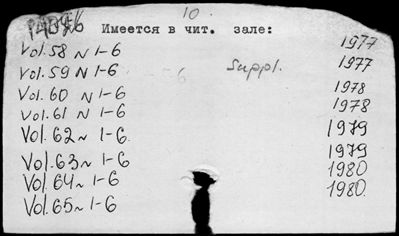 10.
Имеется в чит. зале:
Vol.58 N 1-6 1977
Vol.59 N 1-6 Suppl. 1977
Vol.60 N 1-6 1978
Vol.61 N 1-6 1978
Vol.62 N 1-6. 1979
Vol.63 N 1-6 1979
Vol.64 N 1-6 1980
Vol.65 N 1-6 1980